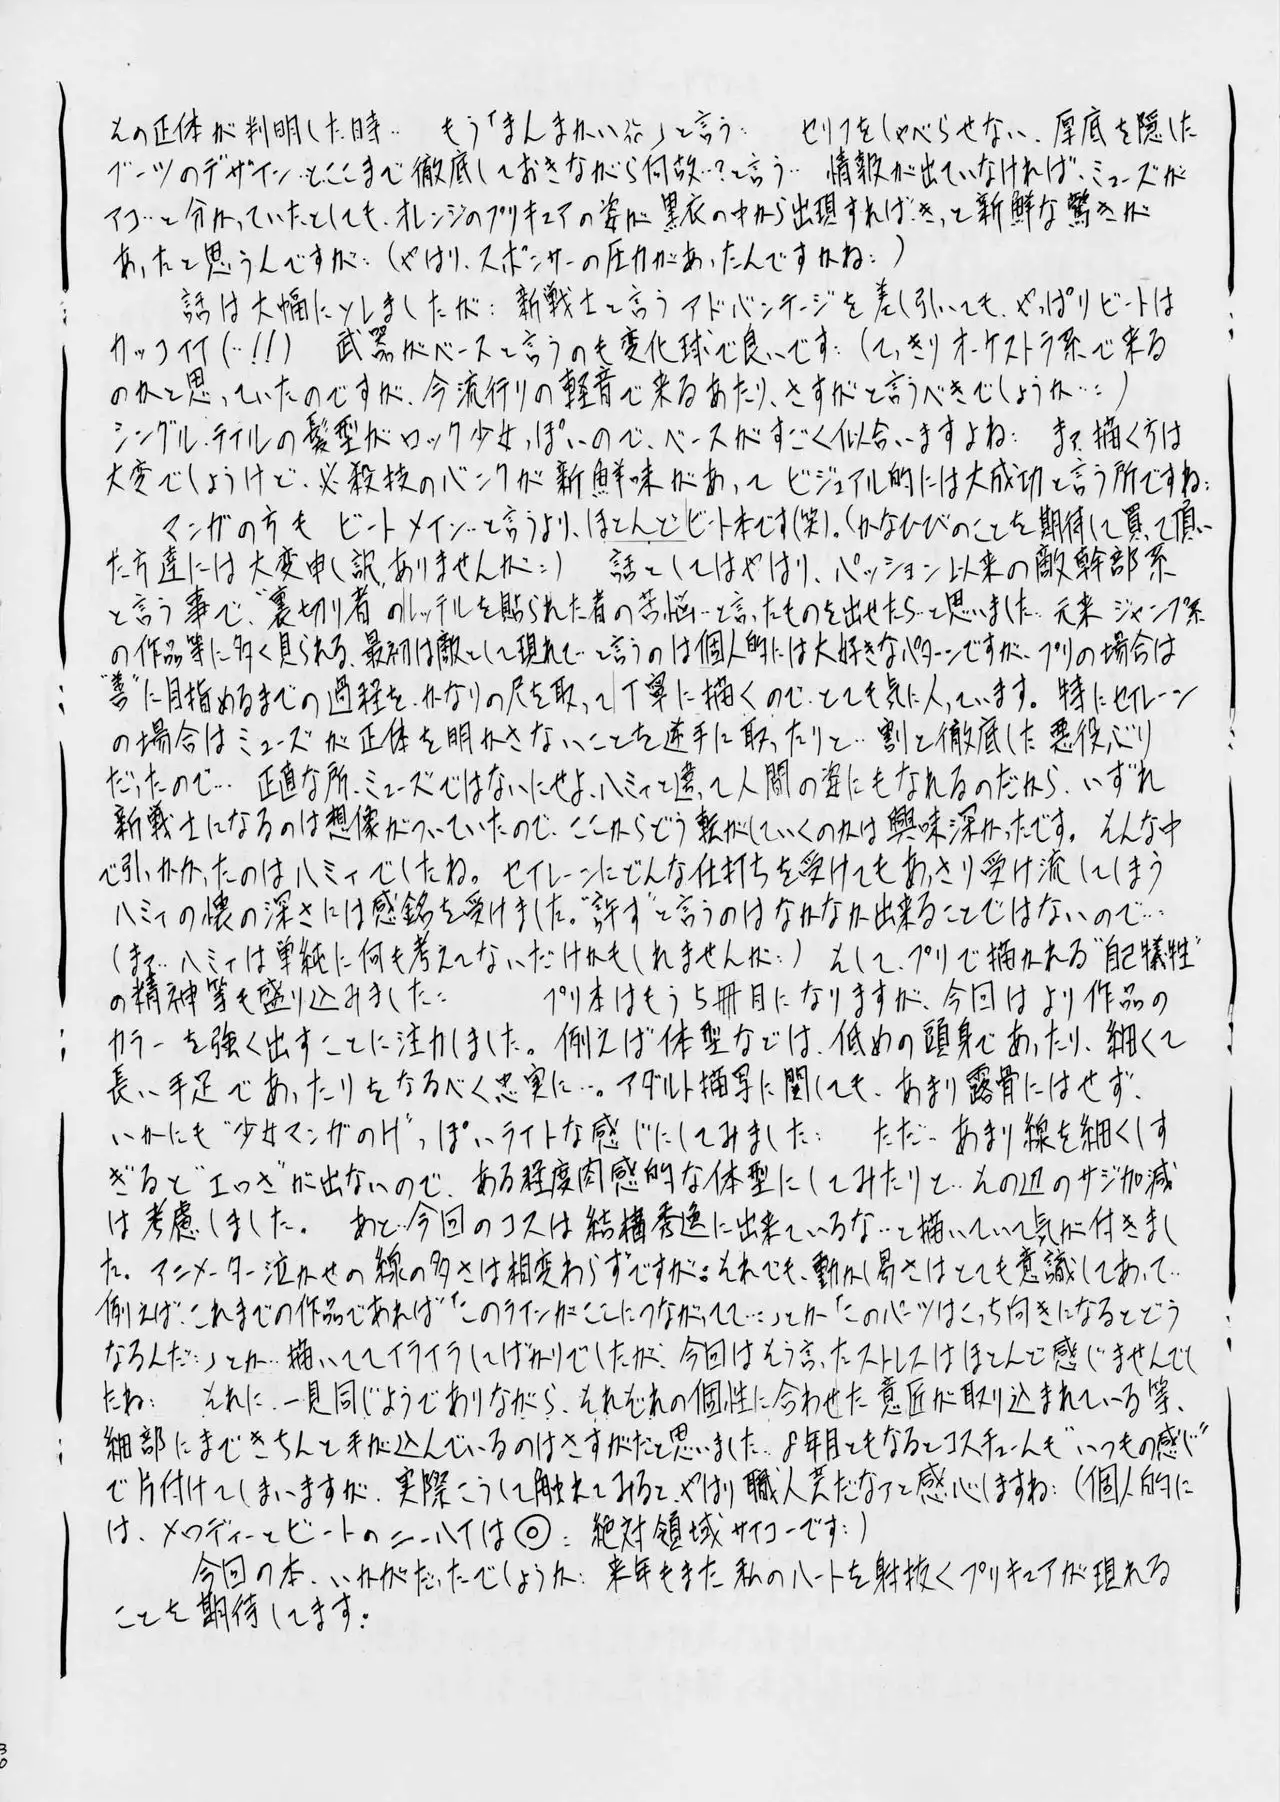 その正体が判明した時… もう「まんまかい!!」と言う… セリフをしゃべらせない、厚底を隠した
ブーツのデザイン…とここまで徹底しておきながら何故…?と言う… 情報が出ていなければ、ミューズが
アコ…と分かっていたとしても、オレンジのプリキュアの姿が黒衣の中から出現すれば、きっと新鮮な驚きが
あったと思うんですが…(やはり、スポンサーの圧力があったんですかね…)
話は大幅にソレましたが… 新戦士と言うアドバンテージを差し引いても、やっぱりビートは
カッコイイ(…!!) 武器がベースと言うのも変化球で良いです…(てっきりオーケストラ系で来る
のかと思っていたのですが、今流行りの軽音で来るあたり、さすがと言うべきでしょうか…)
シングル・テイルの髪型がロック少女っぽいので、ベースがすごく似合いますよね… まァ、描く方は
大変でしょうけど、必殺技のバンクが新鮮味があって ビジュアル的には大成功と言う所ですね…
マンガの方も ビートメイン…と言うより、ほとんどビート本です(笑)。(かなひびのことを期待して買って頂い
た方達には大変申し訳ありませんが…) 話としてはやはり、パッション以来の敵幹部系
と言う事で、"裏切り者"のレッテルを貼られた者の苦悩…と言ったものを出せたら…と思いました… 元来 ジャンプ系
の作品等に多く見られる、最初は敵として現れて…と言うのは個人的には大好きなパターンですが、プリの場合は
"善"に目指めるまでの過程を、かなりの尺を取って丁寧に描くので、とても気に入っています。特にセイレーン
の場合はミューズが正体を明かさないことを逆手に取ったりと… 割と徹底した悪役ぶり
だったので… 正直な所、ミューズではないにせよ、ハミィと違って人間の姿にもなれるのだから、いずれ
新戦士になるのは想像がついていたので、ここからどう転がしていくのかは興味深かったです。そんな中
で引っかかったのはハミィでしたね。セイレーンにどんな仕打ちを受けてもあっさり受け流してしまう
ハミィの懐の深さには感銘を受けました。"許す"と言うのはなかなか出来ることではないので…
(まァ… ハミィは単純に何も考えてないだけかもしれませんが…) そして、プリで描かれる"自己犠牲"
の精神等も盛り込みました… プリ本はもう5冊目になりますが、今回はより作品の
カラーを強く出すことに注力しました。例えば体型などでは、低めの頭身であったり、細くて
長い手足であったりをなるべく忠実に…。アダルト描写に関しても、あまり露骨にはせず、
いかにも"少女マンガのH"っぽいライトな感じにしてみました… ただ… あまり線を細くしす
ぎると"エロさ"が出ないので、ある程度肉感的な体型にしてみたりと… その辺のサジ加減
は考慮しました。 あと…今回のコスは結構秀逸に出来ているな…と描いていて気が付きまし
た。アニメーター泣かせの線の多さは相変わらずですが… それでも、動かし易さはとても意識してあって…
例えば、これまでの作品であれば「このラインがここにつながってて…」とか「このパーツはこっち向きになるとどう
なるんだ…」とか…描いててイライラしてばかりでしたが、今回はそう言ったストレスはほとんど感じませんでし
たね… それに、一見同じようでありながら、それぞれの個性に合わせた意匠が取り込まれている等、
細部にまできちんと手が込んでいるのはさすがだと思いました… 8年目ともなるとコスチュームも"いつもの感じ"
で片付けてしまいますが、実際こうして触れてみると、やはり職人芸だなァと感心しますね…(個人的に
は、メロディーとビートのニーハイは◎… 絶対領域サイコーです…)
今回の本、いかがだったでしょうか… 来年もまた私のハートを射抜くプリキュアが現れる
ことを期待してます…
30